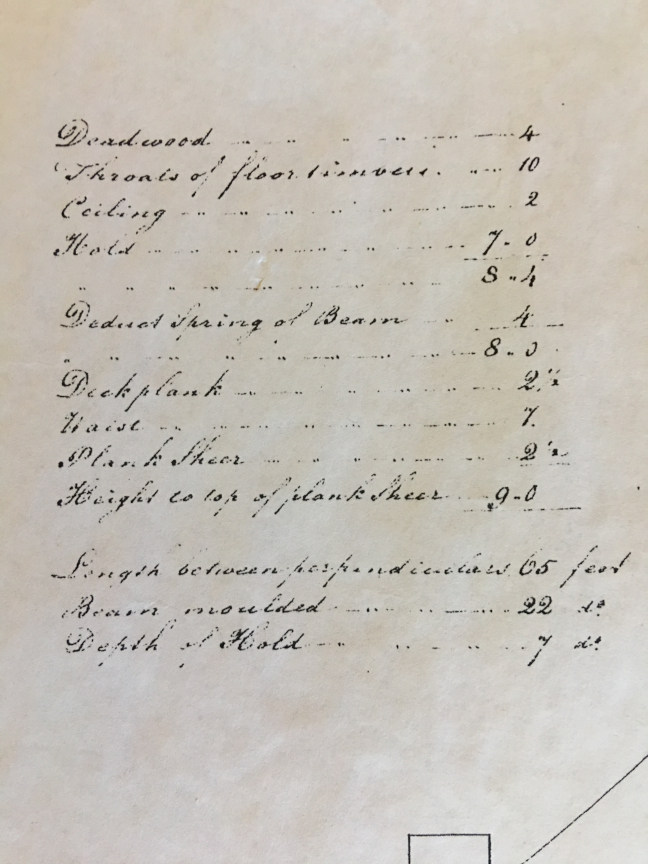 Deadwood 4
Throats of floor timbers. 10
Ceiling 2
Hold 7 " 0
" " " " " " 8 " 4
Deduct Spring of Beam 4
" " " " 8 " 0
Deck plank 2 ½
Waist 7
Plank Sheer 2 ½
Height to top of plank Sheer 9 " 0
Length between perpendiculars 65 feet
Beam moulded 22 do
Depth of Hold 7 do